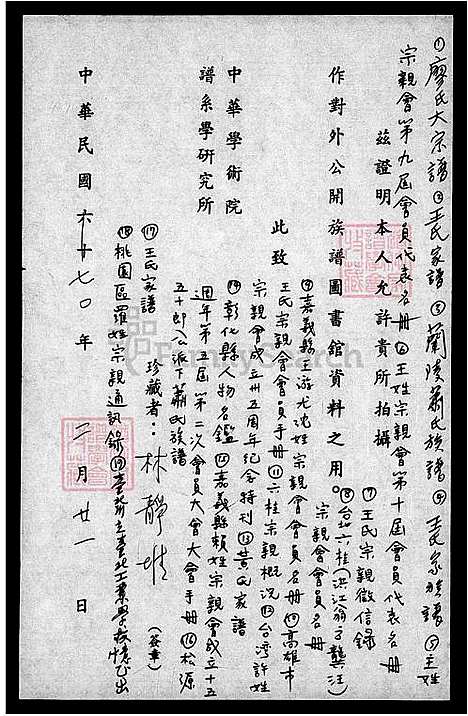 ①廖氏大宗譜②王氏家譜③蘭陵蕭氏族譜④王氏家族譜⑤王姓
宗親會第九屆會員代表名冊⑥王姓宗親會第十屆會員代表名冊
茲證明本人允許貴所拍攝
⑦王氏宗親徵信錄
作對外公開族譜圖書館資料之用。
⑧台北六桂(洪江翁方龔汪)
宗親會會員名冊
此致
⑨嘉義縣王游尤沈姓宗親會會員名冊⑩高雄市
王氏宗親會會員手冊⑪六桂宗親概況⑫台灣許姓
宗親會成立卅五周年紀念特刊⑬黃氏家譜
中華學術院
⑭彰化縣人物名鑑⑮嘉義縣賴姓宗親會成立十五
譜系學研究所
週年第五屆第二次會員大會大會手冊⑯松源
五十郎公派下蕭氏族譜
珍藏者：林靜
(簽章)
⑰王氏家譜
⑱桃園區羅姓宗親通訊錄⑲臺北工業學校憶出
中華民國六十七〇年 二月廿一日
FamilySearch